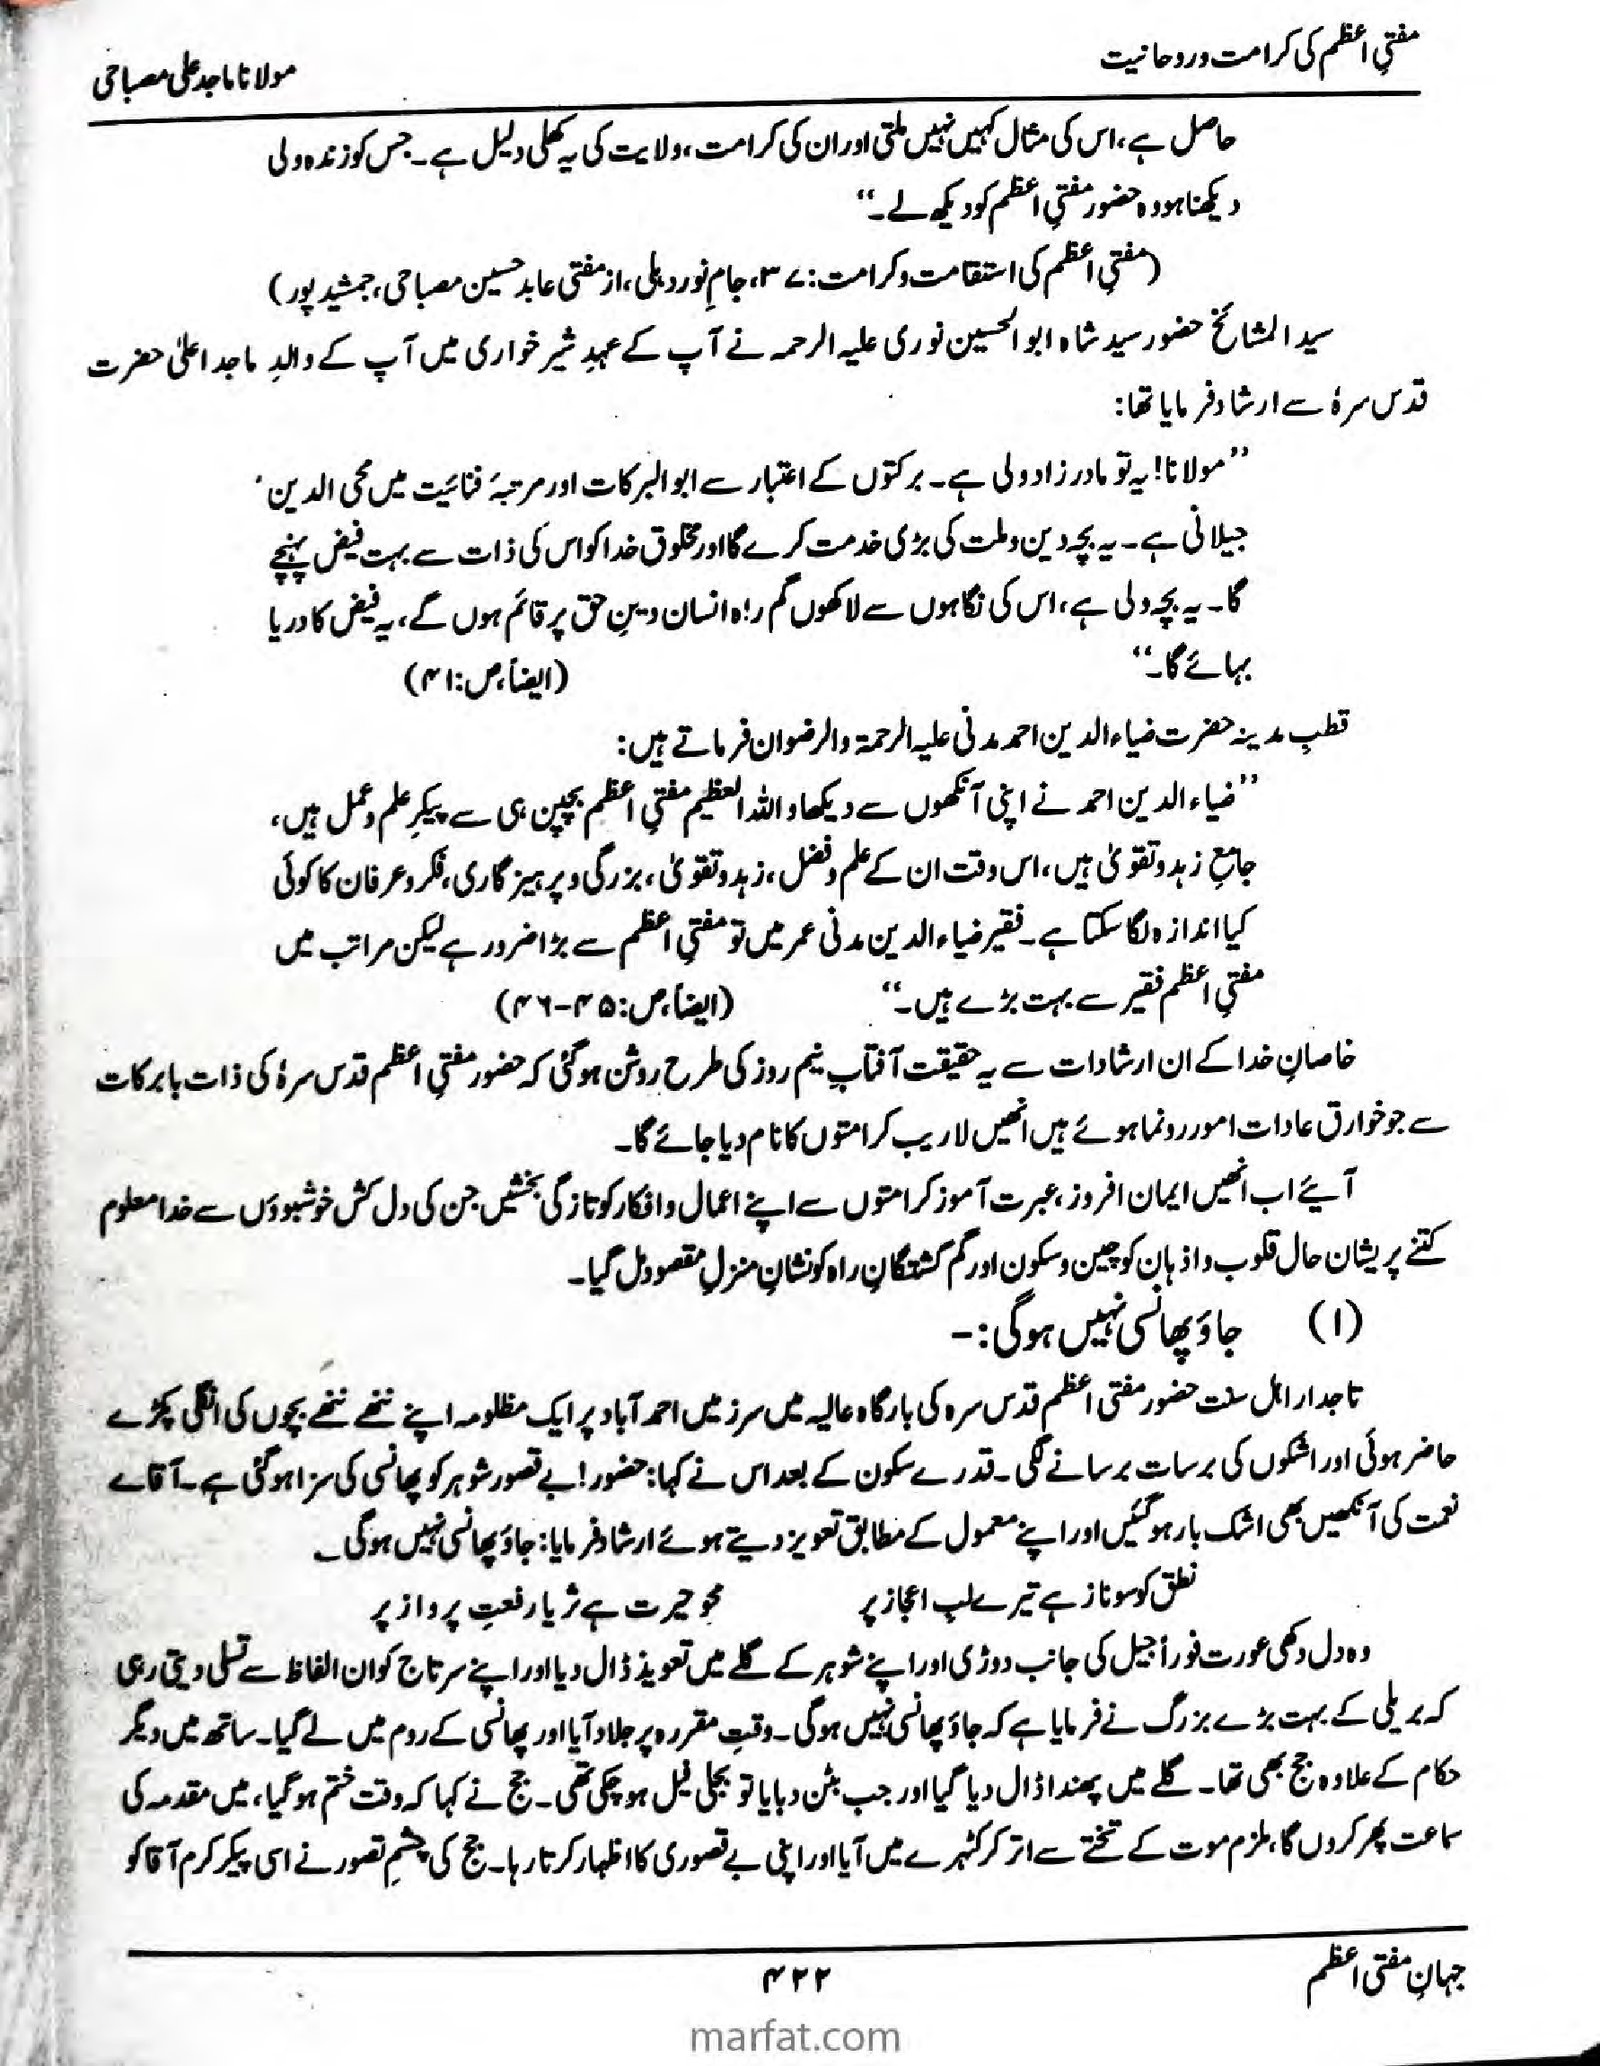 مفتیِ اعظم کی کرامت و روحانیت
مولانا ماجد علی مصباحی
حاصل ہے، اس کی مثال کہیں نہیں ملتی اور ان کی کرامت، ولایت کی یہ کھلی دلیل ہے۔ جس کو زندہ ولی
دیکھنا ہو وہ حضور مفتیِ اعظم کو دیکھ لے۔“
(مفتیِ اعظم کی استقامت و کرامت: ۳۷، جامِ نور دہلی، از مفتی عابد حسین مصباحی، جمشید پور)
سید المشائخ حضور سید شاہ ابو الحسین نوری علیہ الرحمہ نے آپ کے عہدِ شیر خواری میں آپ کے والدِ ماجد اعلیٰ حضرت
قدس سرہٗ سے ارشاد فرمایا تھا:
”مولانا! یہ تو مادر زاد ولی ہے۔ برکتوں کے اعتبار سے ابو البرکات اور مرتبۂ فنائیت میں محی الدین
جیلانی ہے۔ یہ بچہ دین و ملت کی بڑی خدمت کرے گا اور مخلوق خدا کو اس کی ذات سے بہت فیض پہنچے
گا۔ یہ بچہ ولی ہے، اس کی نگاہوں سے لاکھوں گم راہ انسان دینِ حق پر قائم ہوں گے، یہ فیض کا دریا
بہائے گا۔“ (ایضاً، ص: ۴۱)
قطبِ مدینہ حضرت ضیاء الدین احمد مدنی علیہ الرحمۃ والرضوان فرماتے ہیں:
”ضیاء الدین احمد نے اپنی آنکھوں سے دیکھا واللہ العظیم مفتیِ اعظم بچپن ہی سے پیکرِ علم و عمل ہیں،
جامعِ زہد و تقویٰ ہیں، اس وقت ان کے علم و فضل، زہد و تقویٰ، بزرگی و پرہیزگاری، فکر و عرفان کا کوئی
کیا اندازہ لگا سکتا ہے۔ فقیر ضیاء الدین مدنی عمر میں تو مفتیِ اعظم سے بڑا ضرور ہے لیکن مراتب میں
مفتیِ اعظم فقیر سے بہت بڑے ہیں۔“ (ایضاً، ص: ۴۵-۴۶)
خاصانِ خدا کے ان ارشادات سے یہ حقیقت آفتابِ نیم روز کی طرح روشن ہو گئی کہ حضور مفتیِ اعظم قدس سرہٗ کی ذات بابرکات
سے جو خوارق عادات امور رونما ہوئے ہیں انھیں لاریب کرامتوں کا نام دیا جائے گا۔
آیئے اب انھیں ایمان افروز، عبرت آموز کرامتوں سے اپنے اعمال و افکار کو تازگی بخشیں جن کی دل کش خوشبوؤں سے خدا معلوم
کتنے پریشان حال قلوب و اذہان کو چین و سکون اور گم گشتگانِ راہ کو نشانِ منزلِ مقصود مل گیا۔
(۱) جاؤ پھانسی نہیں ہوگی:-
تاجدار اہل سنت حضور مفتی اعظم قدس سرہ کی بارگاہ عالیہ میں سرزمیں احمد آباد پر ایک مظلومہ اپنے ننھے ننھے بچوں کی انگلی پکڑے
حاضر ہوئی اور اشکوں کی برسات برسانے لگی۔ قدرے سکون کے بعد اس نے کہا: حضور! بے قصور شوہر کو پھانسی کی سزا ہو گئی ہے۔ آقاے
نعمت کی آنکھیں بھی اشک بار ہو گئیں اور اپنے معمول کے مطابق تعویز دیتے ہوئے ارشاد فرمایا: جاؤ پھانسی نہیں ہوگی۔
نطق کو سو ناز ہے تیرے لبِ اعجاز پر محوِ حیرت ہے ثریا رفعتِ پرواز پر
وہ دل دکھی عورت فوراً جیل کی جانب دوڑی اور اپنے شوہر کے گلے میں تعویذ ڈال دیا اور اپنے سرتاج کو ان الفاظ سے تسلی دیتی رہی
کہ بریلی کے بہت بڑے بزرگ نے فرمایا ہے کہ جاؤ پھانسی نہیں ہوگی۔ وقتِ مقررہ پر جلاد آیا اور پھانسی کے روم میں لے گیا۔ ساتھ میں دیگر
حکام کے علاوہ جج بھی تھا۔ گلے میں پھندا ڈال دیا گیا اور جب بٹن دبایا تو بجلی فیل ہو چکی تھی۔ جج نے کہا کہ وقت ختم ہو گیا، میں مقدمہ کی
سماعت پھر کروں گا، ملزم موت کے تختے سے اتر کر کٹہرے میں آیا اور اپنی بے قصوری کا اظہار کرتا رہا۔ جج کی چشمِ تصور نے اسی پیکر کرم آقا کو
جہانِ مفتی اعظم
۴۲۲
marfat.com